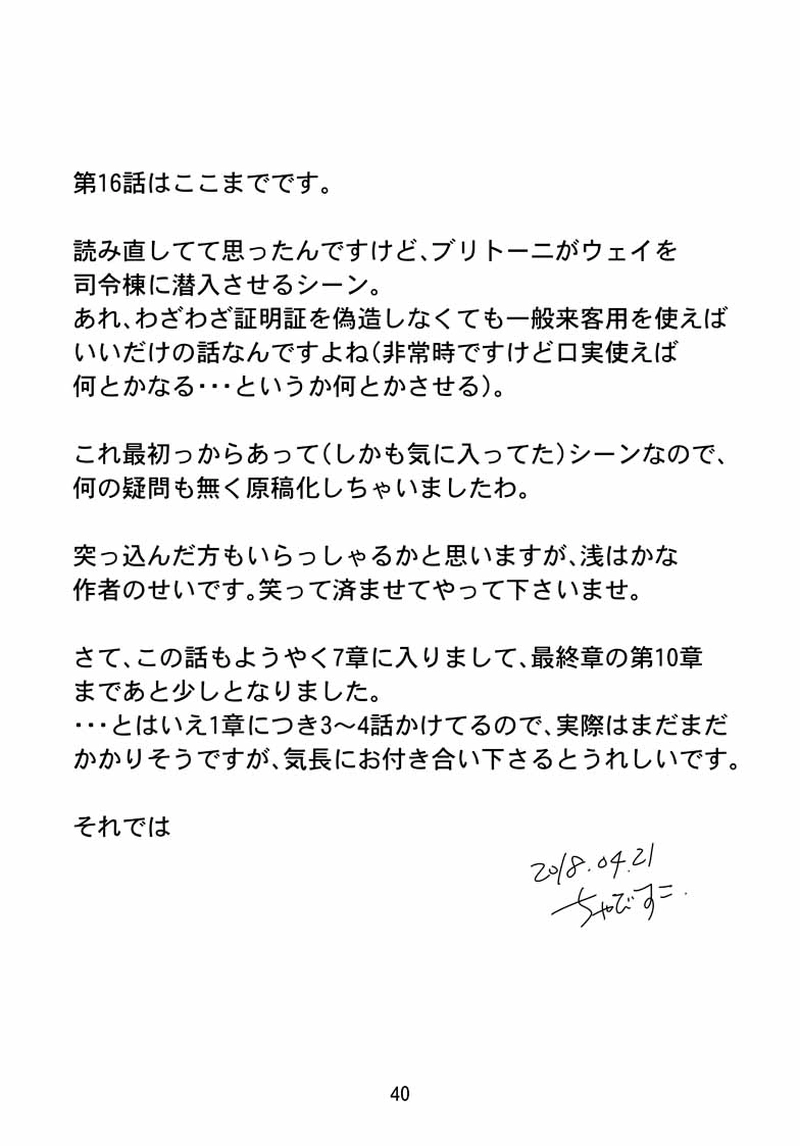 第16話はここまでです。
読み直してて思ったんですけど、ブリトーニがウェイを
司令棟に潜入させるシーン。
あれ、わざわざ証明証を偽造しなくても一般来客用を使えば
いいだけの話なんですよね（非常時ですけど口実使えば
何とかなる・・・というか何とかさせる）。
これ最初っからあって（しかも気に入ってた）シーンなので、
何の疑問も無く原稿化しちゃいましたわ。
突っ込んだ方もいらっしゃるかと思いますが、浅はかな
作者のせいです。笑って済ませてやって下さいませ。
さて、この話もようやく7章に入りまして、最終章の第10章
まであと少しとなりました。
・・・とはいえ1章につき3～4話かけてるので、実際はまだまだ
かかりそうですが、気長にお付き合い下さるとうれしいです。
それでは
2018.04.21
ちゃびすこ.
40